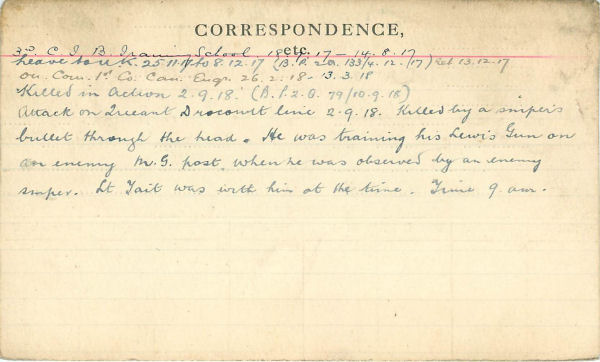 CORRESPONDENCE,
etc.
3rd C. I. B. Training School 18 17 – 14.8.17
Leave to U.K. 25.11.17 to 8.12.17 (B.P. 2.O. 133/4.12./17) Ret 13.12.17
on Com. 1st Co. Can. Engr. 26.2.18 - 13.3.18
Killed in Action 2.9.18. (B.P.2.O. 79/10.9.18)
Attack on Queant Drocourt line 2.9.18. Killed by a sniper's
bullet through the head. He was training his Lewis Gun on
an enemy M.G. post when he was observed by an enemy
sniper. Lt Tait was with him at the time. Time 9 am.